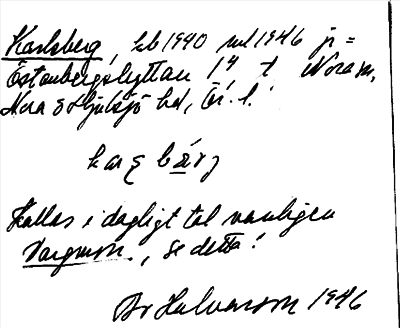 Karlsberg, hb 1940 ml 1946 jr =
Östanbergshyttan 1⁴ t Nora sn,
Nora o Hjulsjö hd, Ör. l.
kaʂbærj
Kallas i dagligt tal vanligen
Norgren, se detta!
Br Halvarson 1946